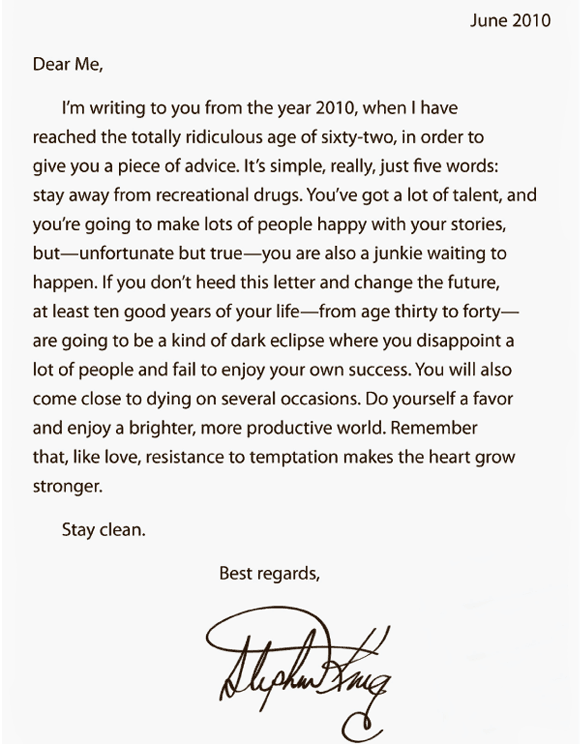 June 2010
Dear Me,
I'm writing to you from the year 2010, when I have
reached the totally ridiculous age of sixty-two, in order to
give you a piece of advice. It's simple, really, just five words:
stay away from recreational drugs. You've got a lot of talent, and
you're going to make lots of people happy with your stories,
but—unfortunate but true—you are also a junkie waiting to
happen. If you don't heed this letter and change the future,
at least ten good years of your life—from age thirty to forty—
are going to be a kind of dark eclipse where you disappoint a
lot of people and fail to enjoy your own success. You will also
come close to dying on several occasions. Do yourself a favor
and enjoy a brighter, more productive world. Remember
that, like love, resistance to temptation makes the heart grow
stronger.
Stay clean.
Best regards,
Stephen King